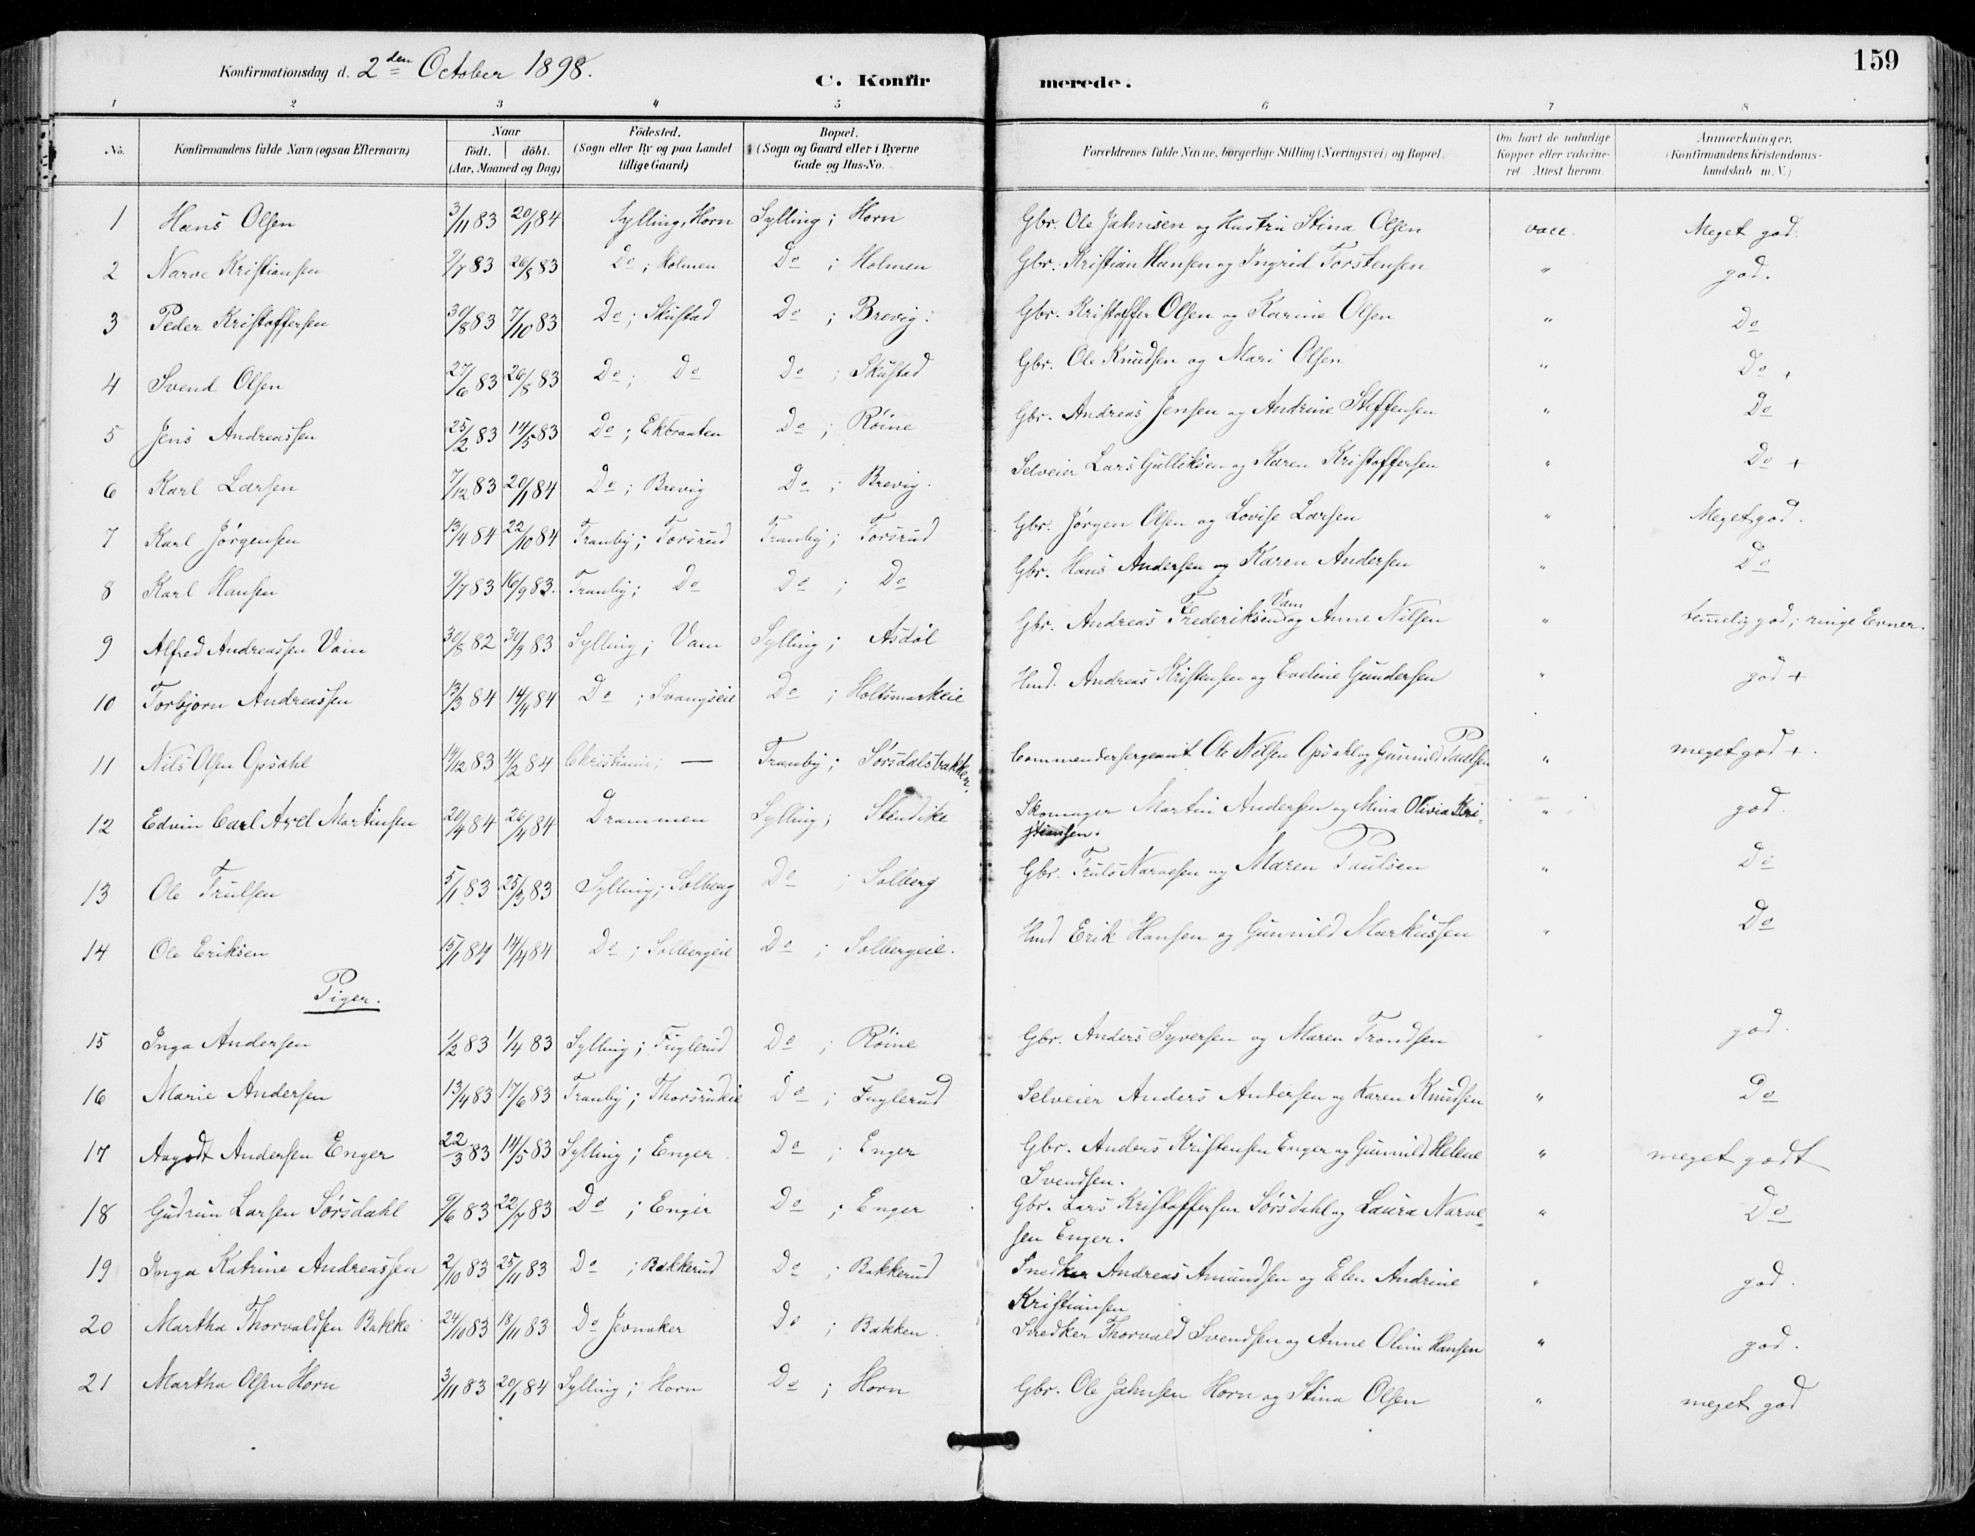 Konfirmationsdag d. 2den October 1898. C. Konfirmerede. 159
1 2 3 4 5 6 7 8
No. Konfirmandens fulde Navn (ogsaa Efternavn) Naar födt. döbt. (Aar, Maaned og Dag) Födested. (Sogn eller By og paa Landet tillige Gaard) Bopæl. (Sogn og Gaard eller i Byerne Gade og Hus-No. Forældrenes fulde Navne, borgerlige Stilling (Næringsvei) og Bopæl. Om havt de naturlige Kopper eller vakcineret. Attest herom. Anmærkninger. (Konfirmandens Kristendomskundskab m. V.)
1 Hans Olsen 3/11 83 20/1 84 Sylling, Horn Sylling; Horn Gbr. Ole Jahnsen og Hustru Stina Olsen vacc. Meget god.
2 Narve Kristiansen 9/7 83 26/8 83 Do; Holmen Do; Holmen Gbr. Kristian Hansen og Ingrid Torstensen " god.
3 Peder Kristoffersen 30/8 83 7/10 83 Do; Skustad Do; Brevig. Gbr. Kristoffer Olsen og Karine Olsen " Do
4 Svend Olsen 27/6 83 26/8 83 Do; Do Do; Skustad Gbr. Ole Knudsen og Mari Olsen " Do
5 Jens Andreassen 25/2 83 14/5 83 Do; Ekbraaten Do; Röine Gbr. Andreas Jensen og Andrine Steffensen " Do
6 Karl Larsen 7/12 83 20/1 84 Do; Brevig Do; Brevig. Selveier Lars Gulliksen og Karen Kristoffersen " Do +
7 Karl Jörgensen 13/4 84 22/10 84 Tranby; Torsrud Tranby; Torsrud Gbr. Jörgen Olsen og Lovise Larsen " Meget god.
8 Karl Hansen 9/7 83 16/9 83. Tranby; Do Do; Do Gbr. Hans Andersen og Karen Andersen " Do
9 Alfred Andreassen Vam 30/8 82 30/9 83 Sylling; Vam Sylling; Asdöl Gbr. Andreas Frederiksen Vam og Anne Nilsen " temmelig god; ringe Evner.
10 Torbjorn Andreassen 13/3 84 14/4 84 Do; Svangseie Do; Holtsmarkeie Hmd. Andreas Kristensen og Eveline Gundersen " god +
11 Nils Olsen Opsahl 14/12 83 11/2 84 Christiania; — Tranby; Sörsdalsbakken. Commandersergeant Ole Nilsen Opsahl og Gunnild Paulsen " meget god +.
12 Edvin Carl Axel Martinsen 20/4 84 26/4 84 Drammen Sylling; Stendike Skomager Martin Andersen og Mina Olivia Kri-
stiansen. " god.
13 Ole Trulsen 5/1 83 25/3 83 Sylling; Solberg Do; Solberg Gbr. Truls Narvesen og Maren Paulsen " Do
14 Ole Eriksen 15/1 84 14/4 84 Do; Solbergeie Do; Solbergeie. Hmd Erik Hansen og Gunnild Markussen " Do
Piger.
15 Inga Andersen 1/2 83 1/4 83 Sylling; Fuglerud Do; Röine Gbr. Anders Syversen og Maren Trondsen " god.
16 Marie Andersen 13/4 83 17/6 83 Tranby; Thorsrudeie Do; Fuglerud Selveier Anders Andersen og Karen Knudsen " Do
17 Aagodt Andersen Enger 22/3 83 14/5 83 Sylling; Enger Do; Enger Gbr. Anders Kristensen Enger og Gunnild Helene
Svendsen. " meget godt
18 Gudrun Larsen Sörsdahl 9/6 83 22/7 83 Do; Enger Do; Enger Gbr. Lars Kristoffersen Sörsdahl og Laura Narve-
sen Enger. " Do
19 Inga Katrine Andreassen 2/10 83 25/11 83 Do; Bakkerud Do; Bakkerud Snedker Andreas Amundsen og Elen Andrine
Kristiansen " god.
20 Martha Thorvaldsen Bakke 24/10 83 18/11 83 Do Jevnaker Do; Bakken. Snedker Thorvald Svendsen og Anne Oline Hansen " god.
21 Martha Olsen Horn 3/11 83 20/1 84 Sylling; Horn Do; Horn Gbr. Ole Jahnsen Horn og Stina Olsen " meget god